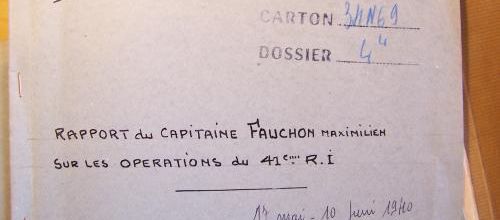 CARTON 34N69
DOSSIER 4⁴
RAPPORT du CAPITAINE FAUCHON MAXIMILIEN
SUR LES OPERATIONS du 41ème R.I
17 mai - 10 juin 1940